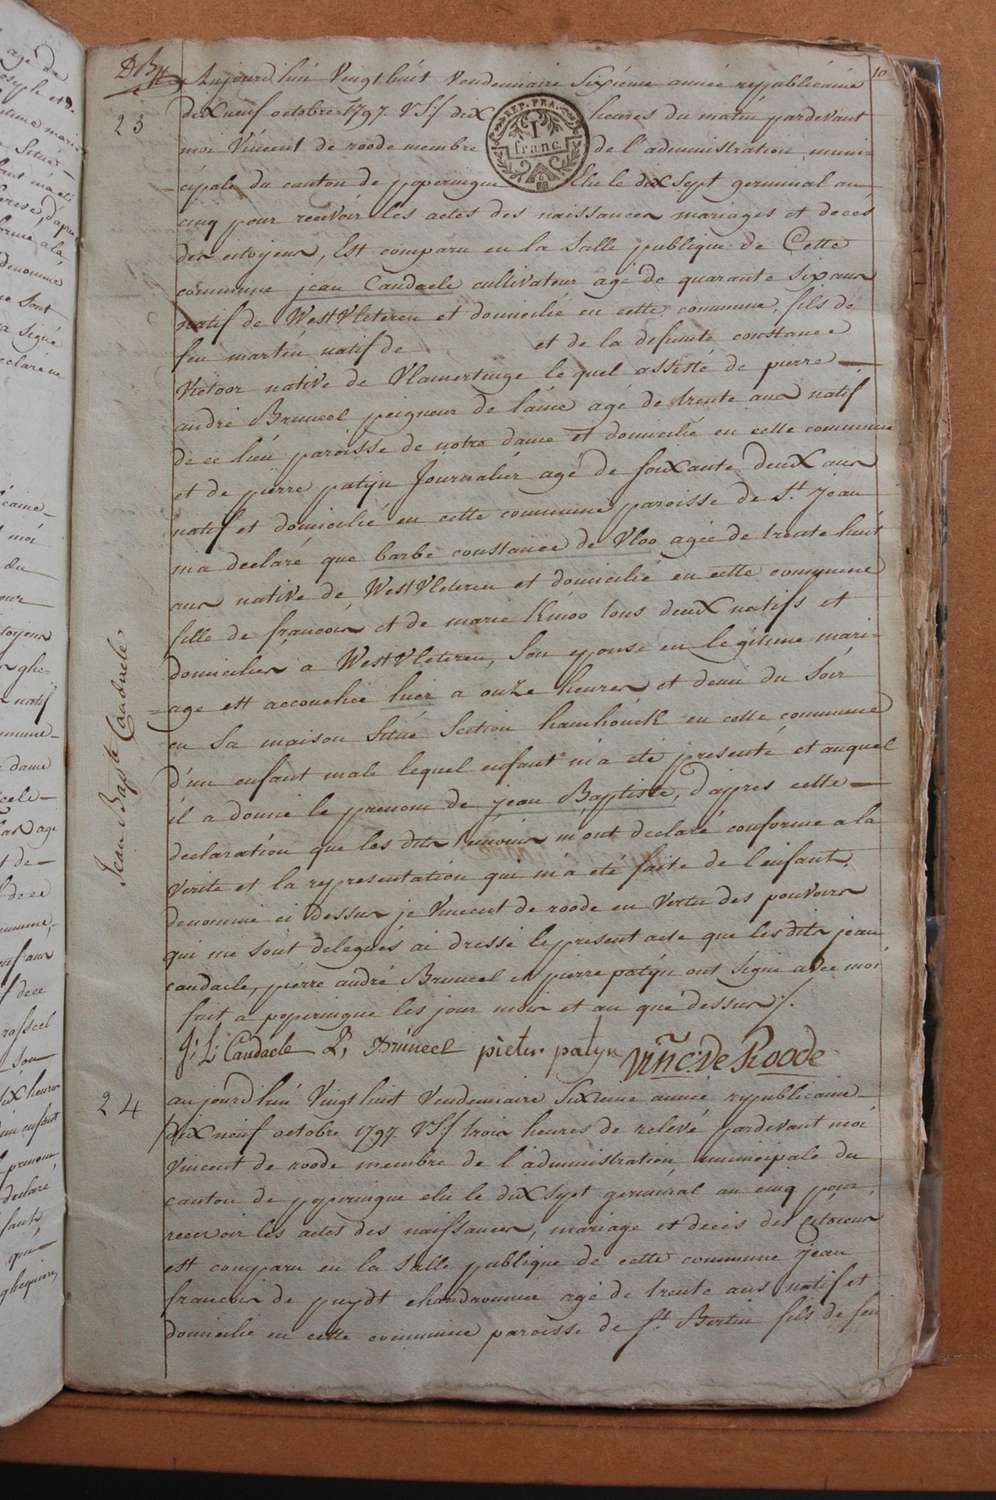 10
23
Aujourd'hui Vingt huit Vendemiaire Sixieme année republicaine
dix neuf octobre 1797 V.S. dix heures du matin pardevant
REP. FRA.
1
franc.
moi Vincent de roode membre de l'administration muni-
cipale du canton de poperingue elu le dix Sept germinal an
cinq pour recevoir les actes des naissances mariages et decès
des citoyens, Est comparu en la Salle publique de Cette
commune jean Caudaele cultivateur agé de quarante Six ans
natif de WestVleteren et domicilié en cette commune, fils de
feu martin natif de et de la defunte constance
Victoor native de Vlamertinge le quel assisté de pierre
andré Bruneel peigneur de laine agé de trente ans natif
de ce lieu paroisse de notre dame et domicilié en cette commune
et de pierre patyn Journalier agé de soixante deux ans
natif et domicilié en cette commune paroisse de St. jean
m'a declaré que barbe constance de Vloo agée de trente huit
ans native de WestVleteren et domicilié en cette commune
fille de francois et de marie Kinoo tous deux natifs et
domiciliés a WestVleteren, Son epouse en legitime mari-
age est accouchée hier a onze heures et demi du Soir
en Sa maison Situé Section hamhouck en cette commune
d'un enfant male lequel enfant m'a eté presenté et auquel
il a donné le prenom de jean Baptiste, d'apres cette
declaration que les dits temoins m'ont declaré conforme a la
verite et la representation qui m'a eté faite de l'enfant
denommé ci dessus je Vincent de roode en Vertu des pouvoirs
qui me sont delegués ai dressé le present acte que les dits jean
caudaele, pierre andré Bruneel et pierre patyn ont signé avec moi
fait a poperingue les jour mois et an que dessus ./.
J: L: Caudaele P, Bruneel pieter patyn Vinc: De Roode
Jean Bapte Caudaele
24
aujourd'hui Vingt huit Vendemiaire Sixieme année republicaine
dix neuf octobre 1797 V.S. trois heures de relevé pardevant moi
Vincent de roode membre de l'administration municipale du
canton de poperingue elu le dix Sept germinal an cinq pour
recevoir les actes des naissances, mariage et decès des Citoiens
est comparu en la Salle publique de cette commune jean
francois de puydt chaudronnier agé de trente ans natif et
domicilié en cette commune paroisse de St. Bertin fils de feu